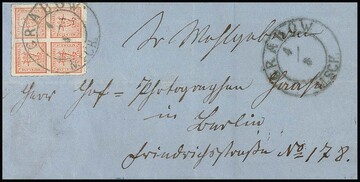 GRABOW
4
M.SCH.
Sr Wohlgeboren
GRABOW
4
M.SCH.
Herrn Hof-Photographen Haase
in
Berlin
Friedrichsstraße No 178.